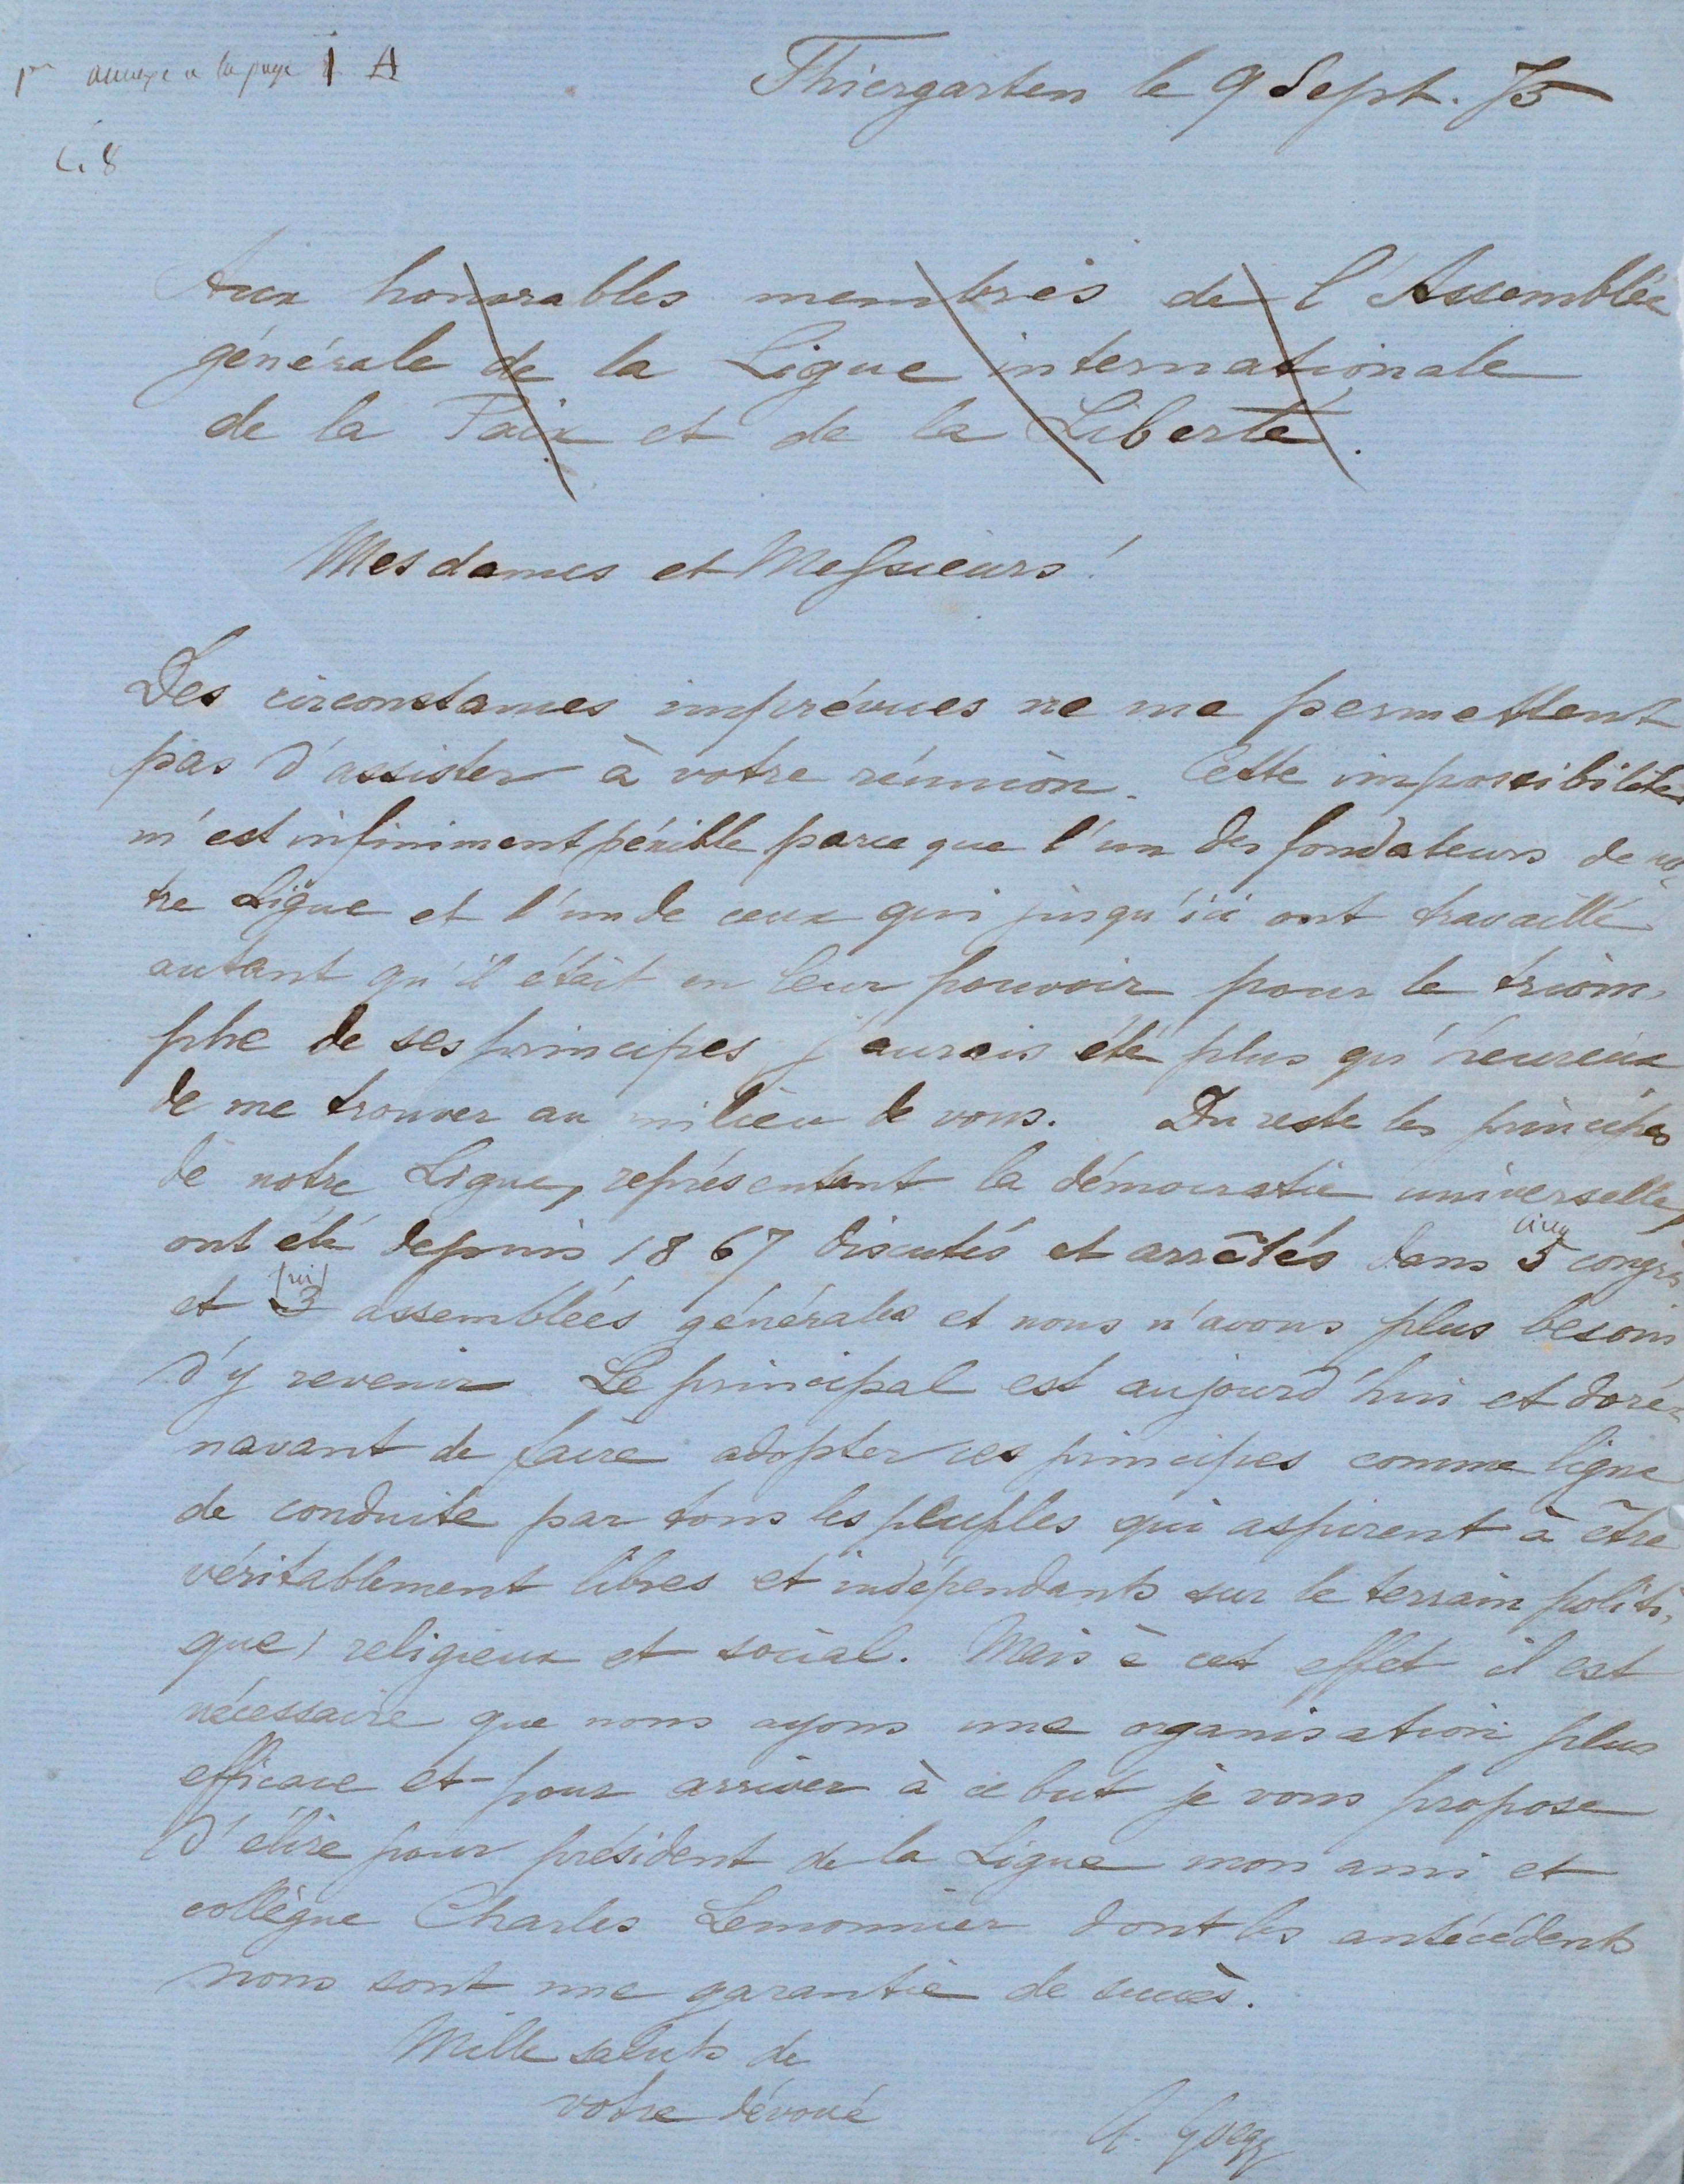 annexe a la page 1 A
C. 8
Thiergarten le 9 Sept. 75
Aux honorables membres de l'Assemblée
générale de la Ligue internationale
de la Paix et de la Liberté.
Mesdames et Messieurs!
Des circonstances imprévues ne me permettent
pas d'assister à votre réunion. Cette impossibilité
m'est infiniment pénible parce que l'un des fondateurs de no-
tre Ligue et l'un de ceux qui jusqu'ici ont travaillé
autant qu'il était en leur pouvoir pour le triom-
phe de ses principes j'aurais été plus qu'heureux
de me trouver au milieu de vous. Du reste les principes
de notre Ligue, représentant la démocratie universelle,
cinq
ont été depuis 1867 discutés et arrêtés dans 5 congrès
et 3 assemblées générales et nous n'avons plus besoin
d'y revenir. Le principal est aujourd'hui et doré-
navant de faire adopter ces principes comme ligne
de conduite par tous les peuples qui aspirent à être
véritablement libres et indépendants sur le terrain politi-
que, religieux et social. Mais à cet effet il est
nécessaire que nous ayons une organisation plus
efficace et pour arriver à ce but je vous propose
d'élire pour président de la Ligue mon ami et
collègue Charles Lemonnier dont les antécédents
nous sont une garantie de succès.
Mille saluts de
votre dévoué
A. Goegg